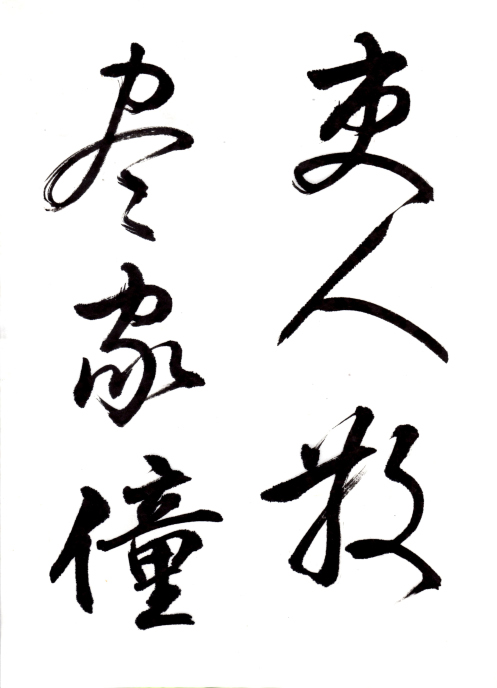 吏人散
尽家僮